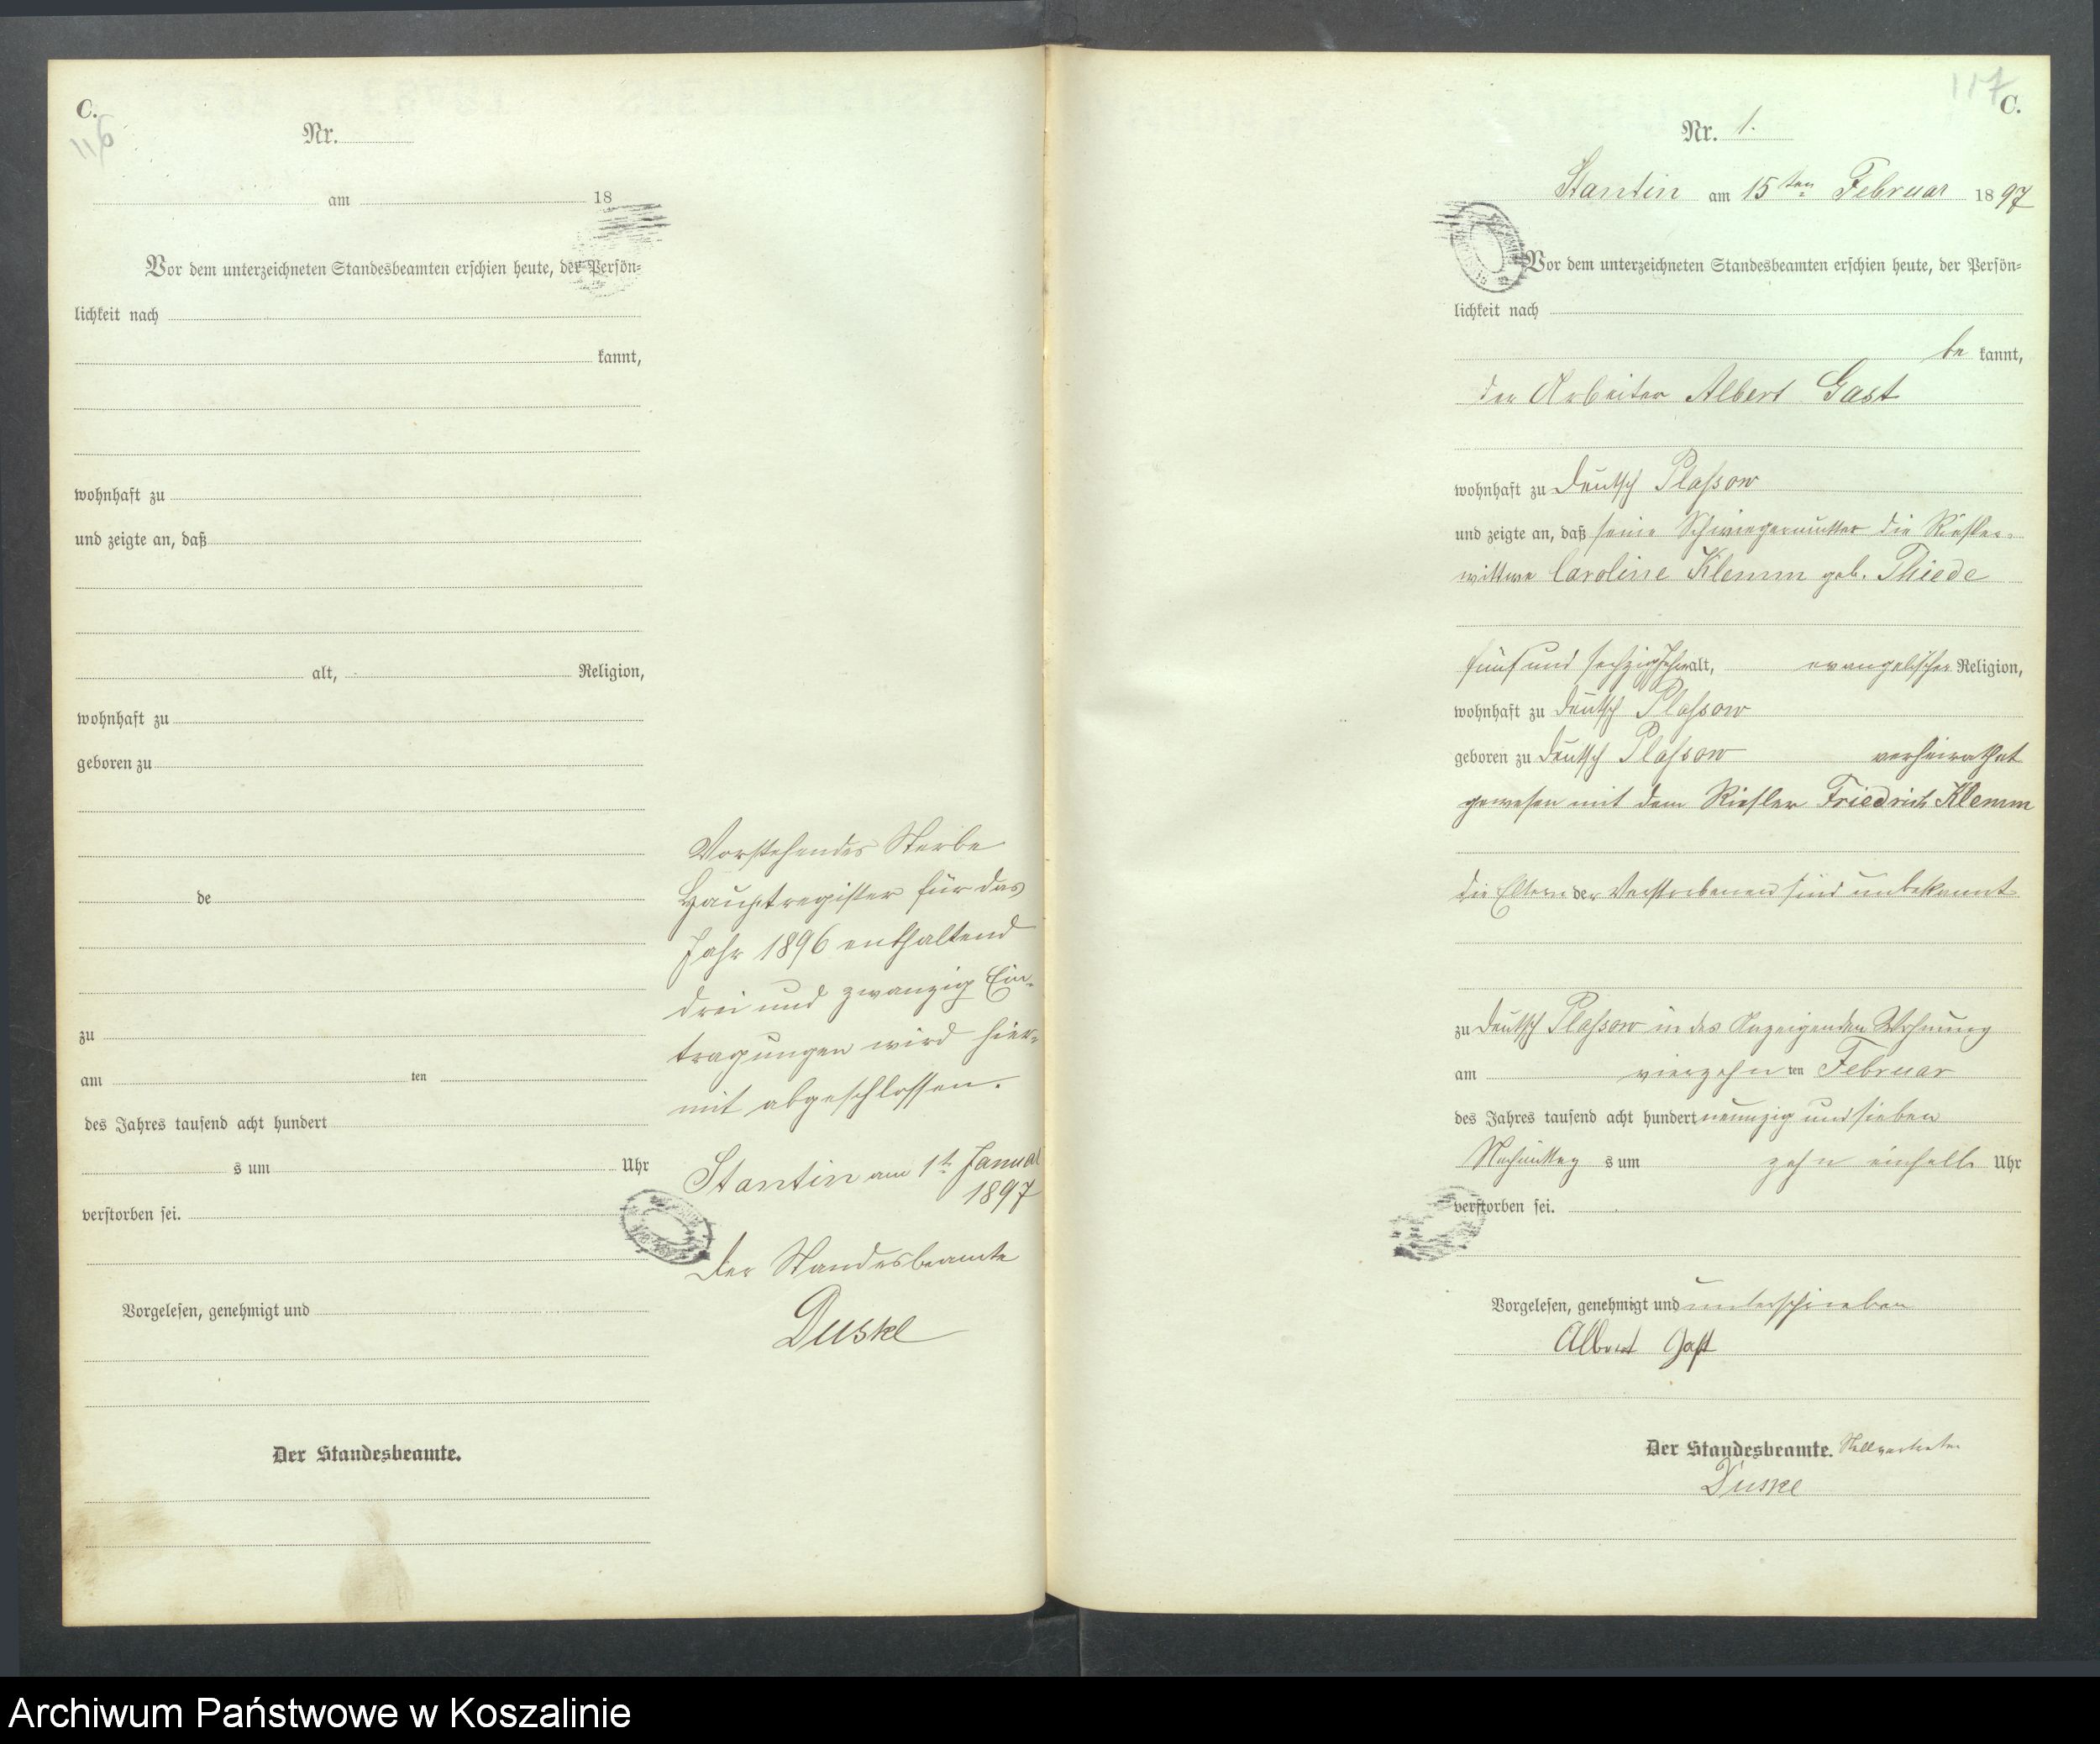 C.
116
Nr.
am 18
Vor dem unterzeichneten Standesbeamten erschien heute, der Persön=
lichkeit nach
kannt,
wohnhaft zu
und zeigte an, daß
alt, Religion,
wohnhaft zu
geboren zu
de
zu
am ten
des Jahres tausend acht hundert
s um Uhr
verstorben sei.
Vorgelesen, genehmigt und
Der Standesbeamte.
Vorstehendes Sterbe
Hauptregister für das
Jahr 1896 enthaltend
drei und zwanzig Ein-
tragungen wird hier-
mit abgeschlossen.
Stantin am 1t Januar
1897
Der Standesbeamte
Duske
117
C.
Nr. 1.
Stantin am 15ten Februar 1897
Vor dem unterzeichneten Standesbeamten erschien heute, der Persön=
lichkeit nach
be kannt,
der Arbeiter Albert Gast
wohnhaft zu Deutsch Plassow
und zeigte an, daß seine Schwiegermutter die
wittwe Caroline Klemm geb. Thiede
fünf und sechzig Jahr alt, evangelischer Religion,
wohnhaft zu Deutsch Plassow
geboren zu Deutsch Plassow verheirathet
gewesen mit dem Friedrich Klemm
die Eltern der Verstorbenen sind unbekannt
zu Deutsch Plassow in des Anzeigenden Wohnung
am vierzehn ten Februar
des Jahres tausend acht hundert neunzig und sieben
Nachmittag s um zehn einhalb Uhr
verstorben sei.
Vorgelesen, genehmigt und unterschrieben
Albert Gast
Der Standesbeamte. Stellvertreter
Duske
Archiwum Państwowe w Koszalinie